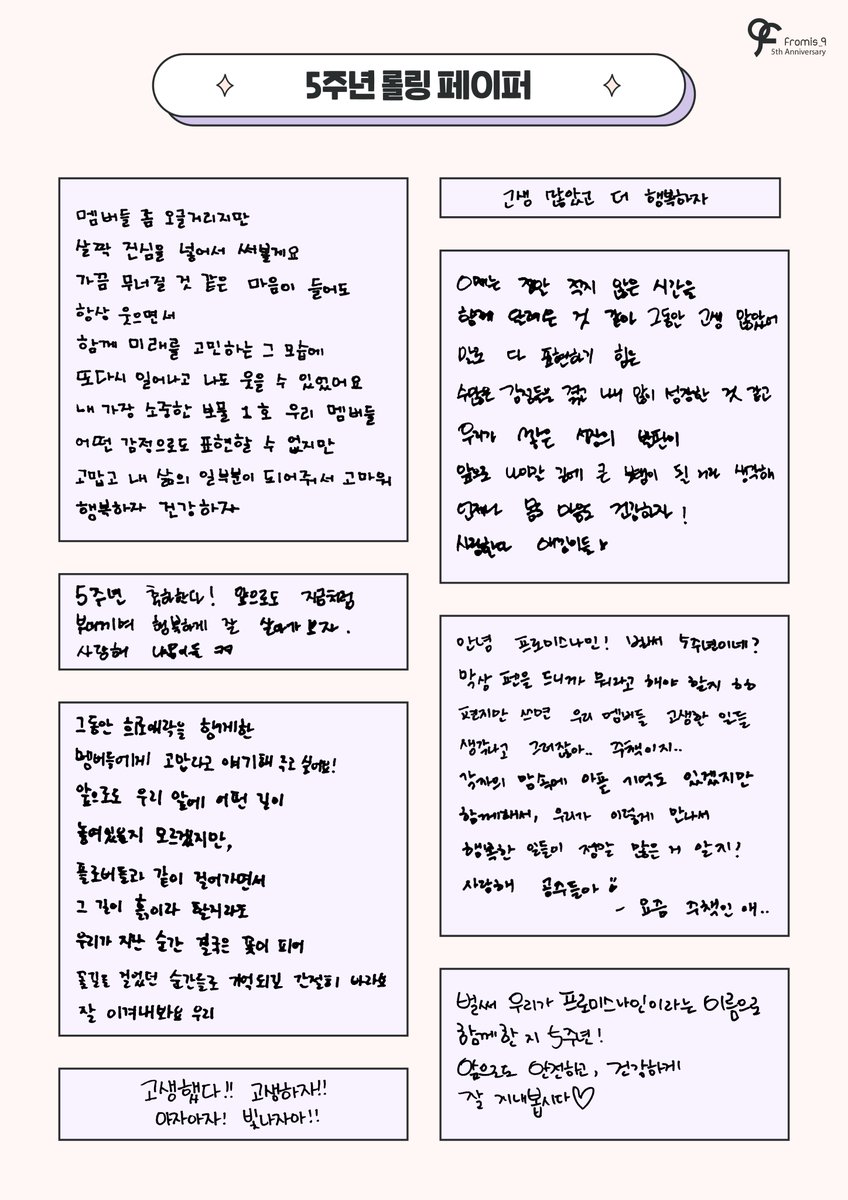 fromis_9
5th Anniversary
5주년 롤링 페이퍼
멤버들 좀 오글거리지만
살짝 진심을 넣어서 써볼게요
가끔 무너질 것 같은 마음이 들어도
항상 웃으면서
함께 미래를 고민하는 그 모습에
또다시 일어나고 나도 웃을 수 있었어요
내 가장 소중한 보물 1호 우리 멤버들
어떤 감정으로도 표현할 수 없지만
고맙고 내 삶의 일부분이 되어줘서 고마워
행복하자 건강하자
5주년 축하한다! 앞으로도 지금처럼
행복하게 잘 살아가 보자.
사랑해
그동안 희로애락을 함께한
멤버들에게 고맙다고 얘기해 주고 싶어요!
앞으로도 우리 앞에 어떤 길이
놓여있을지 모르겠지만,
플로버들과 같이 걸어가면서
그 길이 흙이라 할지라도
우리가 지난 순간 결국은 꽃이 피어
꽃길을 걸었던 순간들로 기억되길 간절히 바라요
잘 이겨내봐요 우리
고생했다!! 고생하자!!
야자아자! 빛나자아!!
고생 많았고 더 행복하자
정말 적지 않은 시간을
함께 달려온 것 같아 그동안 고생 많았어
말로 다 표현하기 힘든
수많은 감정들을 겪고 내내 많이 성장한 것 같고
우리가 찢은 세상의
앞으로 큰 된 거라 생각해
언제나 몸 마음도 건강하자!
사랑한다 애깅이들
안녕 프로미스나인! 벌써 5주년이네?
막상 펜을 드니까 뭐라고 해야 할지 ㅎㅎ
편지만 쓰면 우리 멤버들 고생한 일들
생각나고 그러잖아.. 주책이지..
각자의 맘속에 아픈 기억도 있겠지만
함께해서, 우리가 이렇게 만나서
행복한 일들이 정말 많은 거 알지!
사랑해 공주들아
- 요즘 주책인 애..
벌써 우리가 프로미스나인이라는 이름으로
함께한 지 5주년!
앞으로도 안전하고, 건강하게
잘 지내봅시다♡